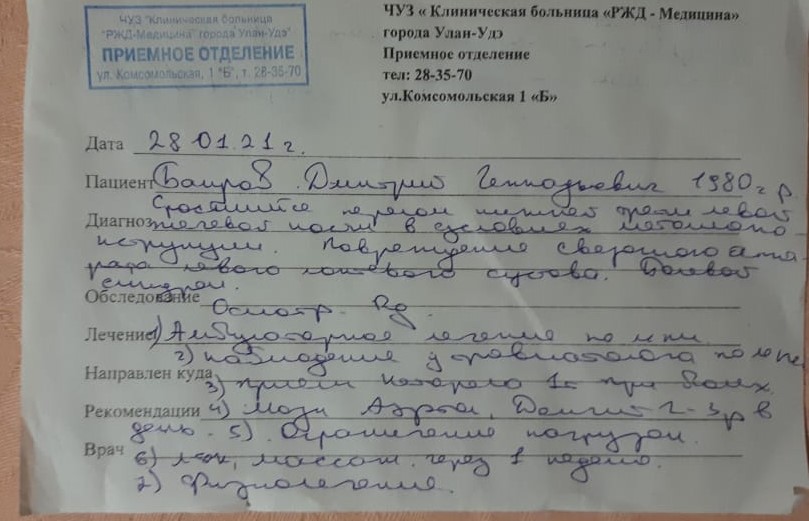 ЧУЗ "Клиническая больница
"РЖД-Медицина" города Улан-Удэ"
ПРИЕМНОЕ ОТДЕЛЕНИЕ
ул. Комсомольская, 1 "Б", т. 28-35-70
ЧУЗ « Клиническая больница «РЖД - Медицина»
города Улан-Удэ
Приемное отделение
тел: 28-35-70
ул.Комсомольская 1 «Б»
Дата 28 01.21 г.
Пациент Баиров Дмитрий Геннадьевич 1980 г р
Сростшийся перелом нижней трети левой
Диагноз плечевой кости в условиях металлоко-
нструкции. Повреждение связочного аппа-
рата левого локтевого сустава. Болевой
синдром.
Обследование Осмотр. Rg
Лечение 1) Амбулаторное лечение по м/ж.
2) наблюдение у травматолога по м/ж
Направлен куда
3) прием 1т при болях
Рекомендации 4) Мази Аэртал, Долгит 2-3 р в
день. 5) Ограничение нагрузки.
Врач 6) массаж через 1 неделю.
7) Физиолечение.